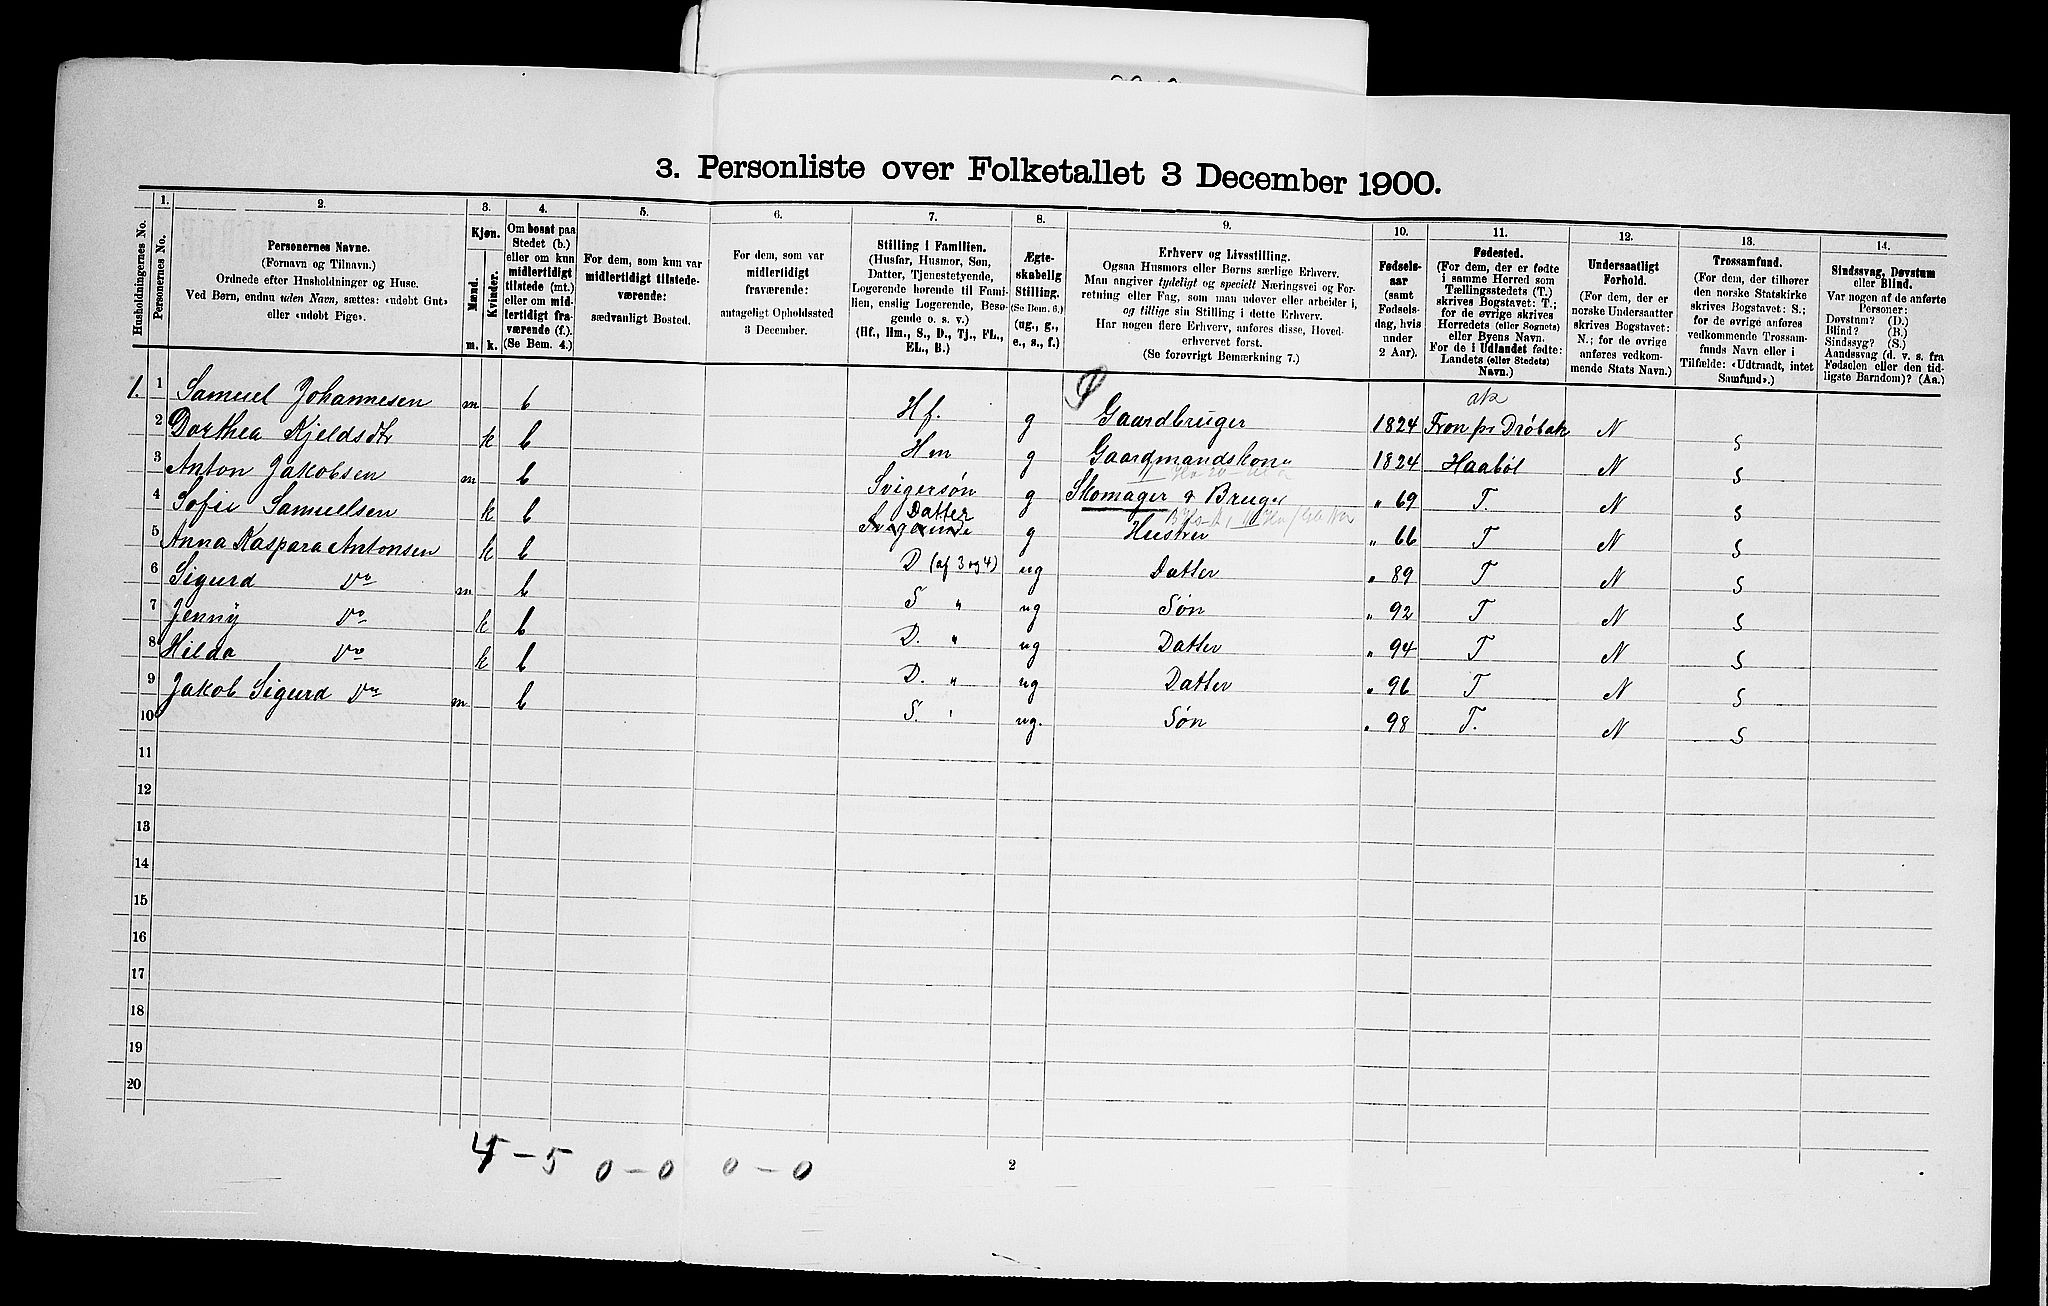 3. Personliste over Folketallet 3 December 1900.
Husholdningernes No.
1.
Personernes No.
2.
Personernes Navne.
(Fornavn og Tilnavn.)
Ordnede efter Husholdninger og Huse.
Ved Børn, endnu uden Navn, sættes: «udøbt Gut»
eller «udøbt Pige».
3.
Kjøn.
Mænd.
Kvinder.
m. k.
4.
Om bosat paa
Stedet (b.)
eller om kun
midlertidigt
tilstede (mt.)
eller om mid-
lertidigt fra-
værende (f.).
(Se Bem. 4.)
5.
For dem, som kun var
midlertidigt tilstede-
værende:
sædvanligt Bosted.
6.
For dem, som var
midlertidigt
fraværende:
antageligt Opholdssted
3 December.
7.
Stilling i Familien.
(Husfar, Husmor, Søn,
Datter, Tjenestetyende,
Logerende hørende til Fami-
lien, enslig Logerende, Besø-
gende o. s. v.)
(Hf., Hm., S., D., Tj., FL.,
EL., B.)
8.
Ægte-
skabelig
Stilling.
(Se Bem. 6.)
(ug., g.,
e., s., f.)
9.
Erhverv og Livsstilling.
Ogsaa Husmors eller Børns særlige Erhverv.
Man angiver tydeligt og specielt Næringsvei og For-
retning eller Fag, som man udøver eller arbeider i,
og tillige sin Stilling i dette Erhverv.
Har nogen flere Erhverv, anføres disse, Hoved-
erhvervet først.
(Se forøvrigt Bemærkning 7.)
10.
Fødsels-
aar
(samt
Fødsels-
dag, hvis
under
2 Aar).
11.
Fødested.
(For dem, der er fødte
i samme Herred som
Tællingsstedets (T.)
skrives Bogstavet: T.;
for de øvrige skrives
Herredets (eller Sognets)
eller Byens Navn.
For de i Udlandet fødte:
Landets (eller Stedets)
Navn.)
12.
Undersaatligt
Forhold.
(For dem, der er
norske Undersaatter
skrives Bogstavet:
N.; for de øvrige
anføres vedkom-
mende Stats Navn.)
13.
Trossamfund.
(For dem, der tilhører
den norske Statskirke
skrives Bogstavet: S.;
for de øvrige anføres
vedkommende Trossam-
funds Navn eller i
Tilfælde: «Udtraadt, intet
Samfund».)
14.
Sindssvag, Døvstum
eller Blind.
Var nogen af de anførte
Personer:
Døvstum? (D.)
Blind? (B.)
Sindssyg? (S.)
Aandssvag (d. v. s. fra
Fødselen eller den tid-
ligste Barndom)? (Aa.)
1. 1 Samuel Johannesen m b Hf. g Gaardbruger 1824 Fron pr Drøbak N S
2 Dorthea Kjeldsdtr k b Hm g Gaardmandskone 1824 Haabøl N S
3 Anton Jakobsen m b Svigersøn g Skomager & Bruger " 69 T. N S
4 Sofie Samuelsen k b Datter g Hustru " 66 T N S
5 Anna Kaspara Antonsen k b D (af 3 og 4) ug Datter " 89 T N S
6 Sigurd Do m b S " ug Søn " 92 T N S
7 Jenny Do k b D. " ug Datter " 94 T N S
8 Hilda Do k b D. " ug Datter " 96 T N S
9 Jakob Sigurd Do m b S. " ug. Søn " 98 T. N S
10
11
12
13
14
15
16
17
18
19
20
4 – 5 0 – 0 0 – 0
2